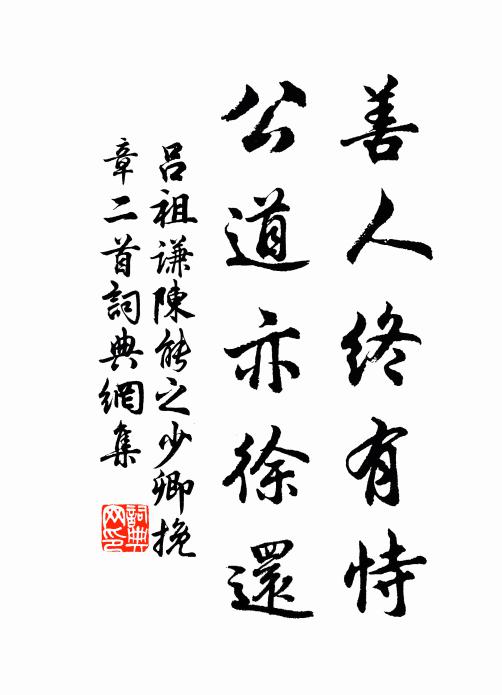 善人終有恃
公道亦徐還
呂祖謙陳能之少卿挽
章二首詞典網集
詞典
网印